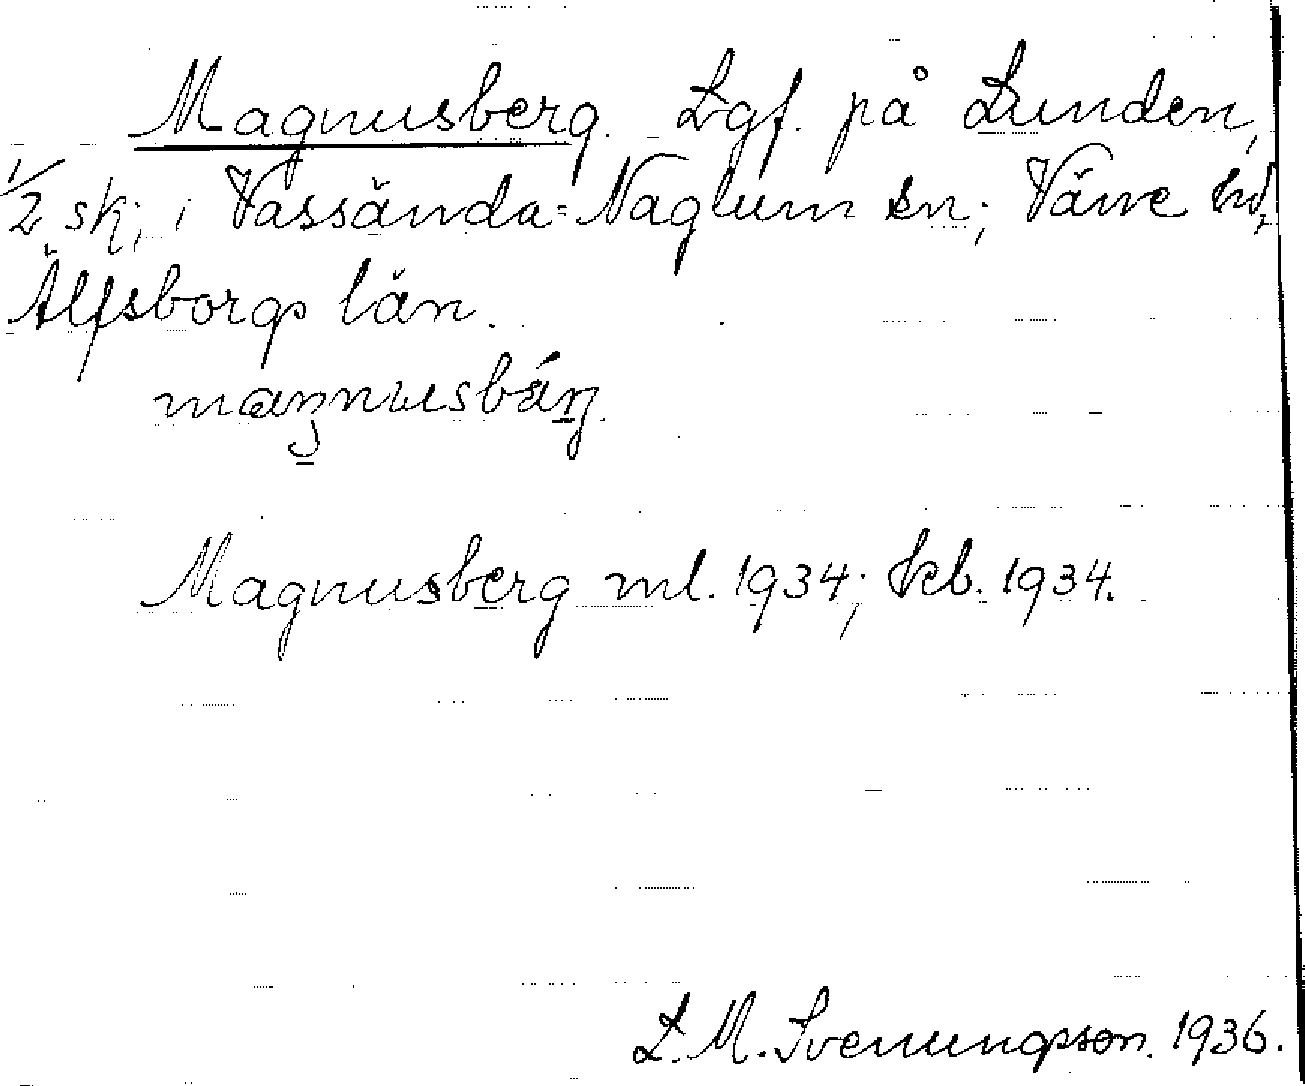 Magnusberg. Lgf. på Lunden,
1/2 sk; i Vassända-Naglum sn; Väne hd,
Älfsborgs län.
maŋnusbárj.
Magnusberg ml. 1934; kb. 1934.
L. M. Svenungsson. 1936.